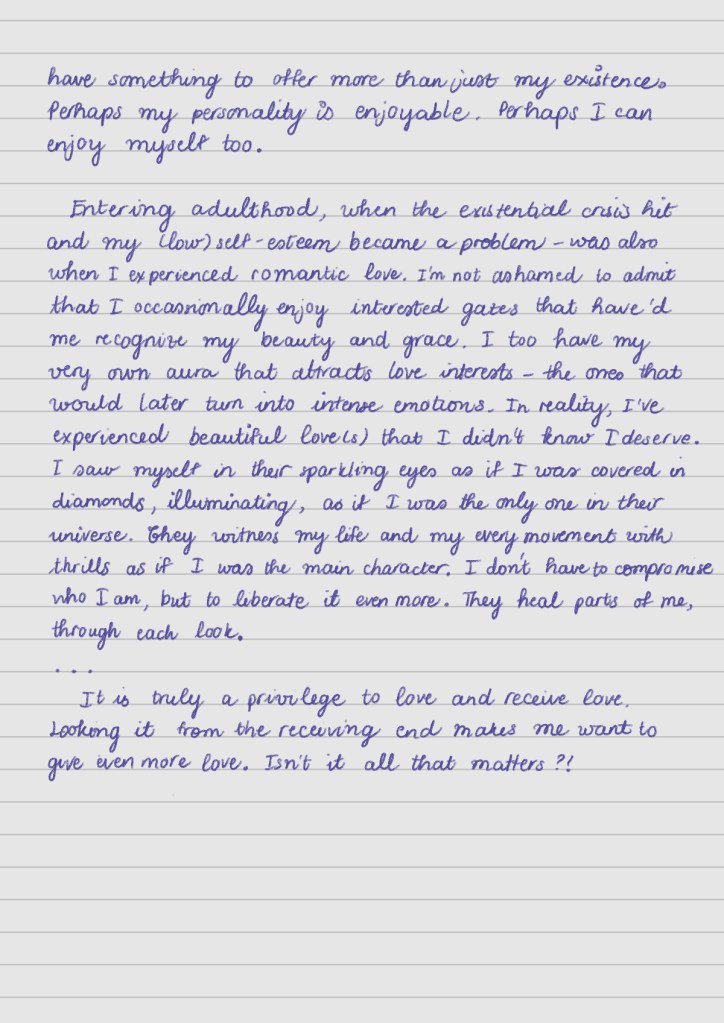 have something to offer more than just my existence.
Perhaps my personality is enjoyable. Perhaps I can
enjoy myself too.
Entering adulthood, when the existential crisis hit
and my (low) self-esteem became a problem - was also
when I experienced romantic love. I'm not ashamed to admit
that I occassionally enjoy interested gazes that have'd
me recognize my beauty and grace. I too have my
very own aura that attracts love interests - the ones that
would later turn into intense emotions. In reality, I've
experienced beautiful love(s) that I didn't know I deserve.
I saw myself in their sparkling eyes as if I was covered in
diamonds, illuminating, as if I was the only one in their
universe. They witness my life and my every movement with
thrills as if I was the main character. I don't have to compromise
who I am, but to liberate it even more. They heal parts of me,
through each look.
...
It is truly a privilege to love and receive love.
Looking it from the receiving end makes me want to
give even more love. Isn't it all that matters ?!